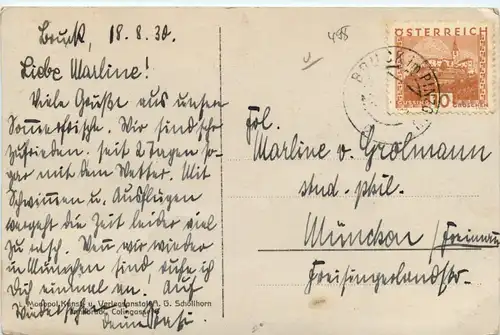 Bruck, 18.8.30.
Liebe Marline!
Viele Grüße aus unserer
Sommerfrische. Wir sind sehr
zufrieden. seit 2 Tagen so-
gar mit dem Wetter. Mit
Schwimmen u. Ausflügen
vergeht die Zeit leider viel
zu rasch. Wenn wir wieder
in München sind rufe ich
Dich einmal an. Auf
Wiedersehen
deine
Monopol Kunst- u. Verlagsanstalt J. G. Schöllhorn
Innsbruck, Colingasse
498
ÖSTERREICH
10
GROSCHEN
BRUCK im PINZG
Frl.
Marline v. Grolmann
stud. phil.
München / Freimann
Freisingerlandstr.